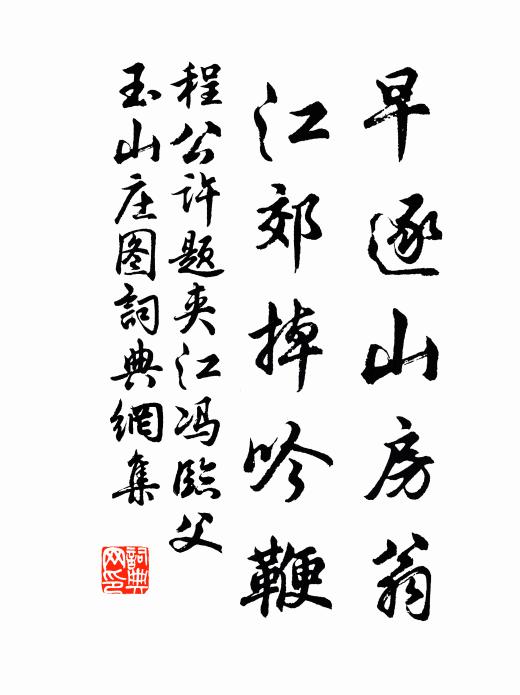 早逐山房翁
江郊掉吟鞭
程公许题夾江冯臨父
玉山庄图詞典網集
詞典网印